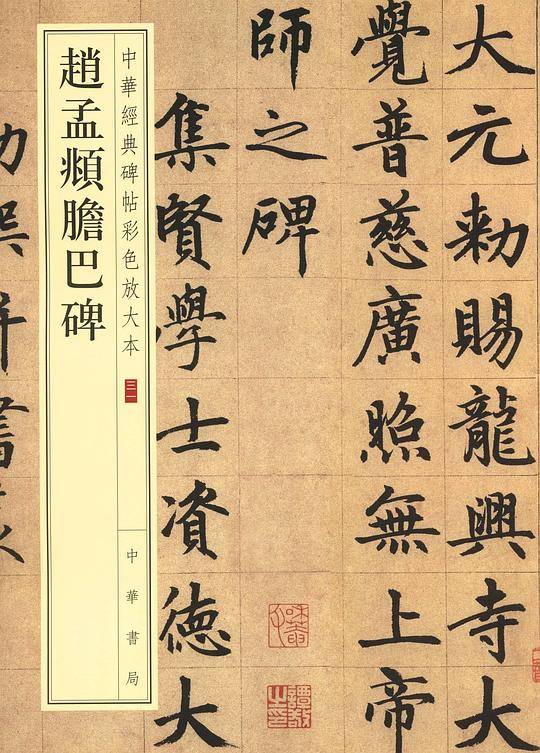 大元勑賜龍興寺大
覺普慈廣照無上帝
師之碑
集賢學士資德大
中華經典碑帖彩色放大本
中華書局
趙孟頫膽巴碑